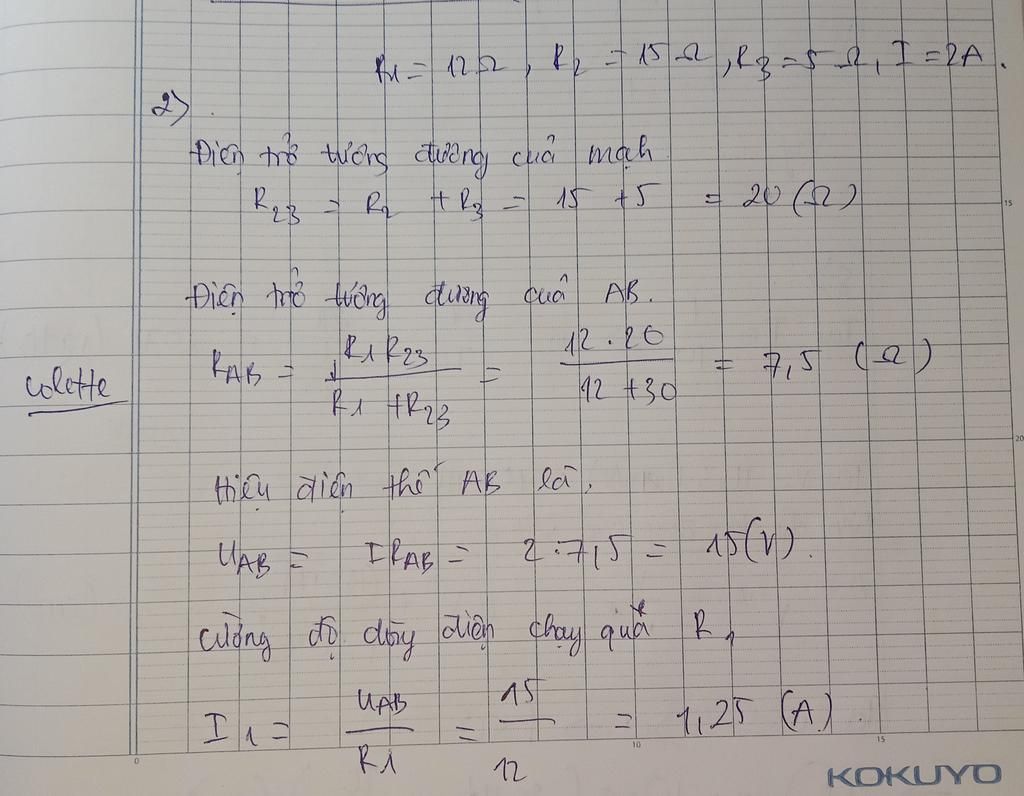 R1 = 12Ω, R2 = 15Ω, R3 = 5Ω, I = 2A.
2)
Điện trở tương đương của mạch
R23 = R2 + R3 = 15 + 5 = 20 (Ω)
15
Điện trở tương đương của AB.
RAB = R1R23 / R1 + R23 = 12.20 / 12 + 30 = 7,5 (Ω)
Colette
20
Hiệu điện thế AB là,
UAB = IRAB = 2.7,5 = 15(V).
Cường độ dòng điện chạy qua R1
I1 = UAB / R1 = 15 / 12 = 1,25 (A).
0 5 10 15
KOKUYO